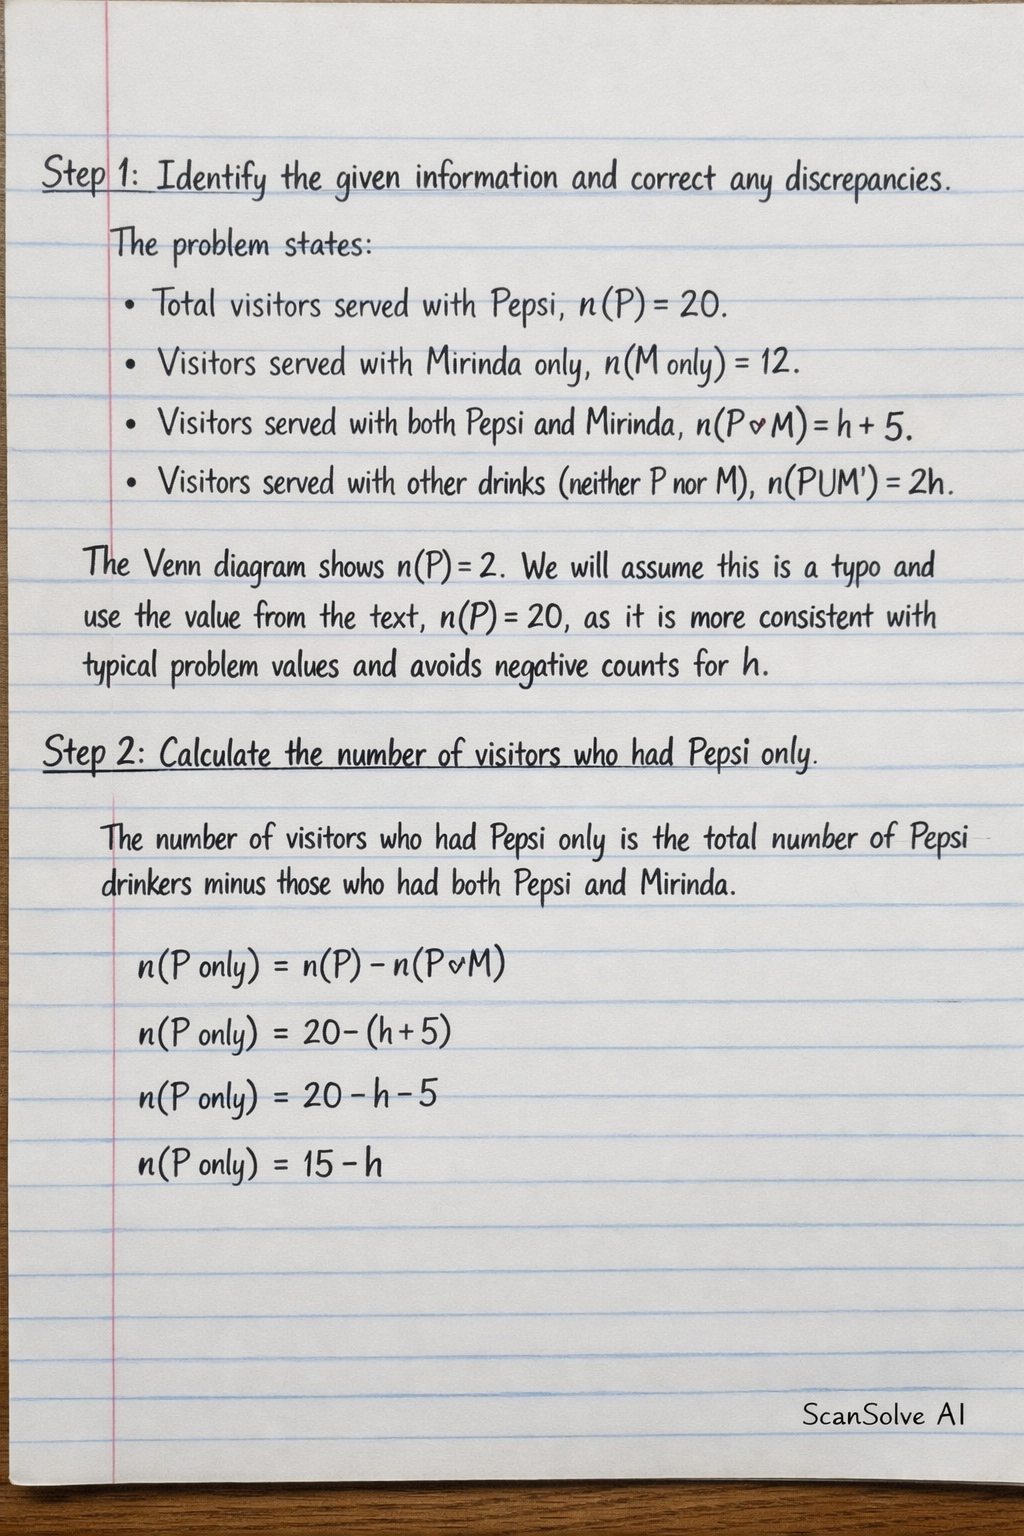 Step 1: Identify the given information and correct any discrepancies.
The problem states:
• Total visitors served with Pepsi, n(P) = 20.
• Visitors served with Mirinda only, n(M only) = 12.
• Visitors served with both Pepsi and Mirinda, n(P∩M) = h + 5.
• Visitors served with other drinks (neither P nor M), n(PUM') = 2h.
The Venn diagram shows n(P) = 2. We will assume this is a typo and
use the value from the text, n(P) = 20, as it is more consistent with
typical problem values and avoids negative counts for h.
Step 2: Calculate the number of visitors who had Pepsi only.
The number of visitors who had Pepsi only is the total number of Pepsi
drinkers minus those who had both Pepsi and Mirinda.
n(P only) = n(P) - n(P∩M)
n(P only) = 20 - (h + 5)
n(P only) = 20 - h - 5
n(P only) = 15 - h
ScanSolve AI